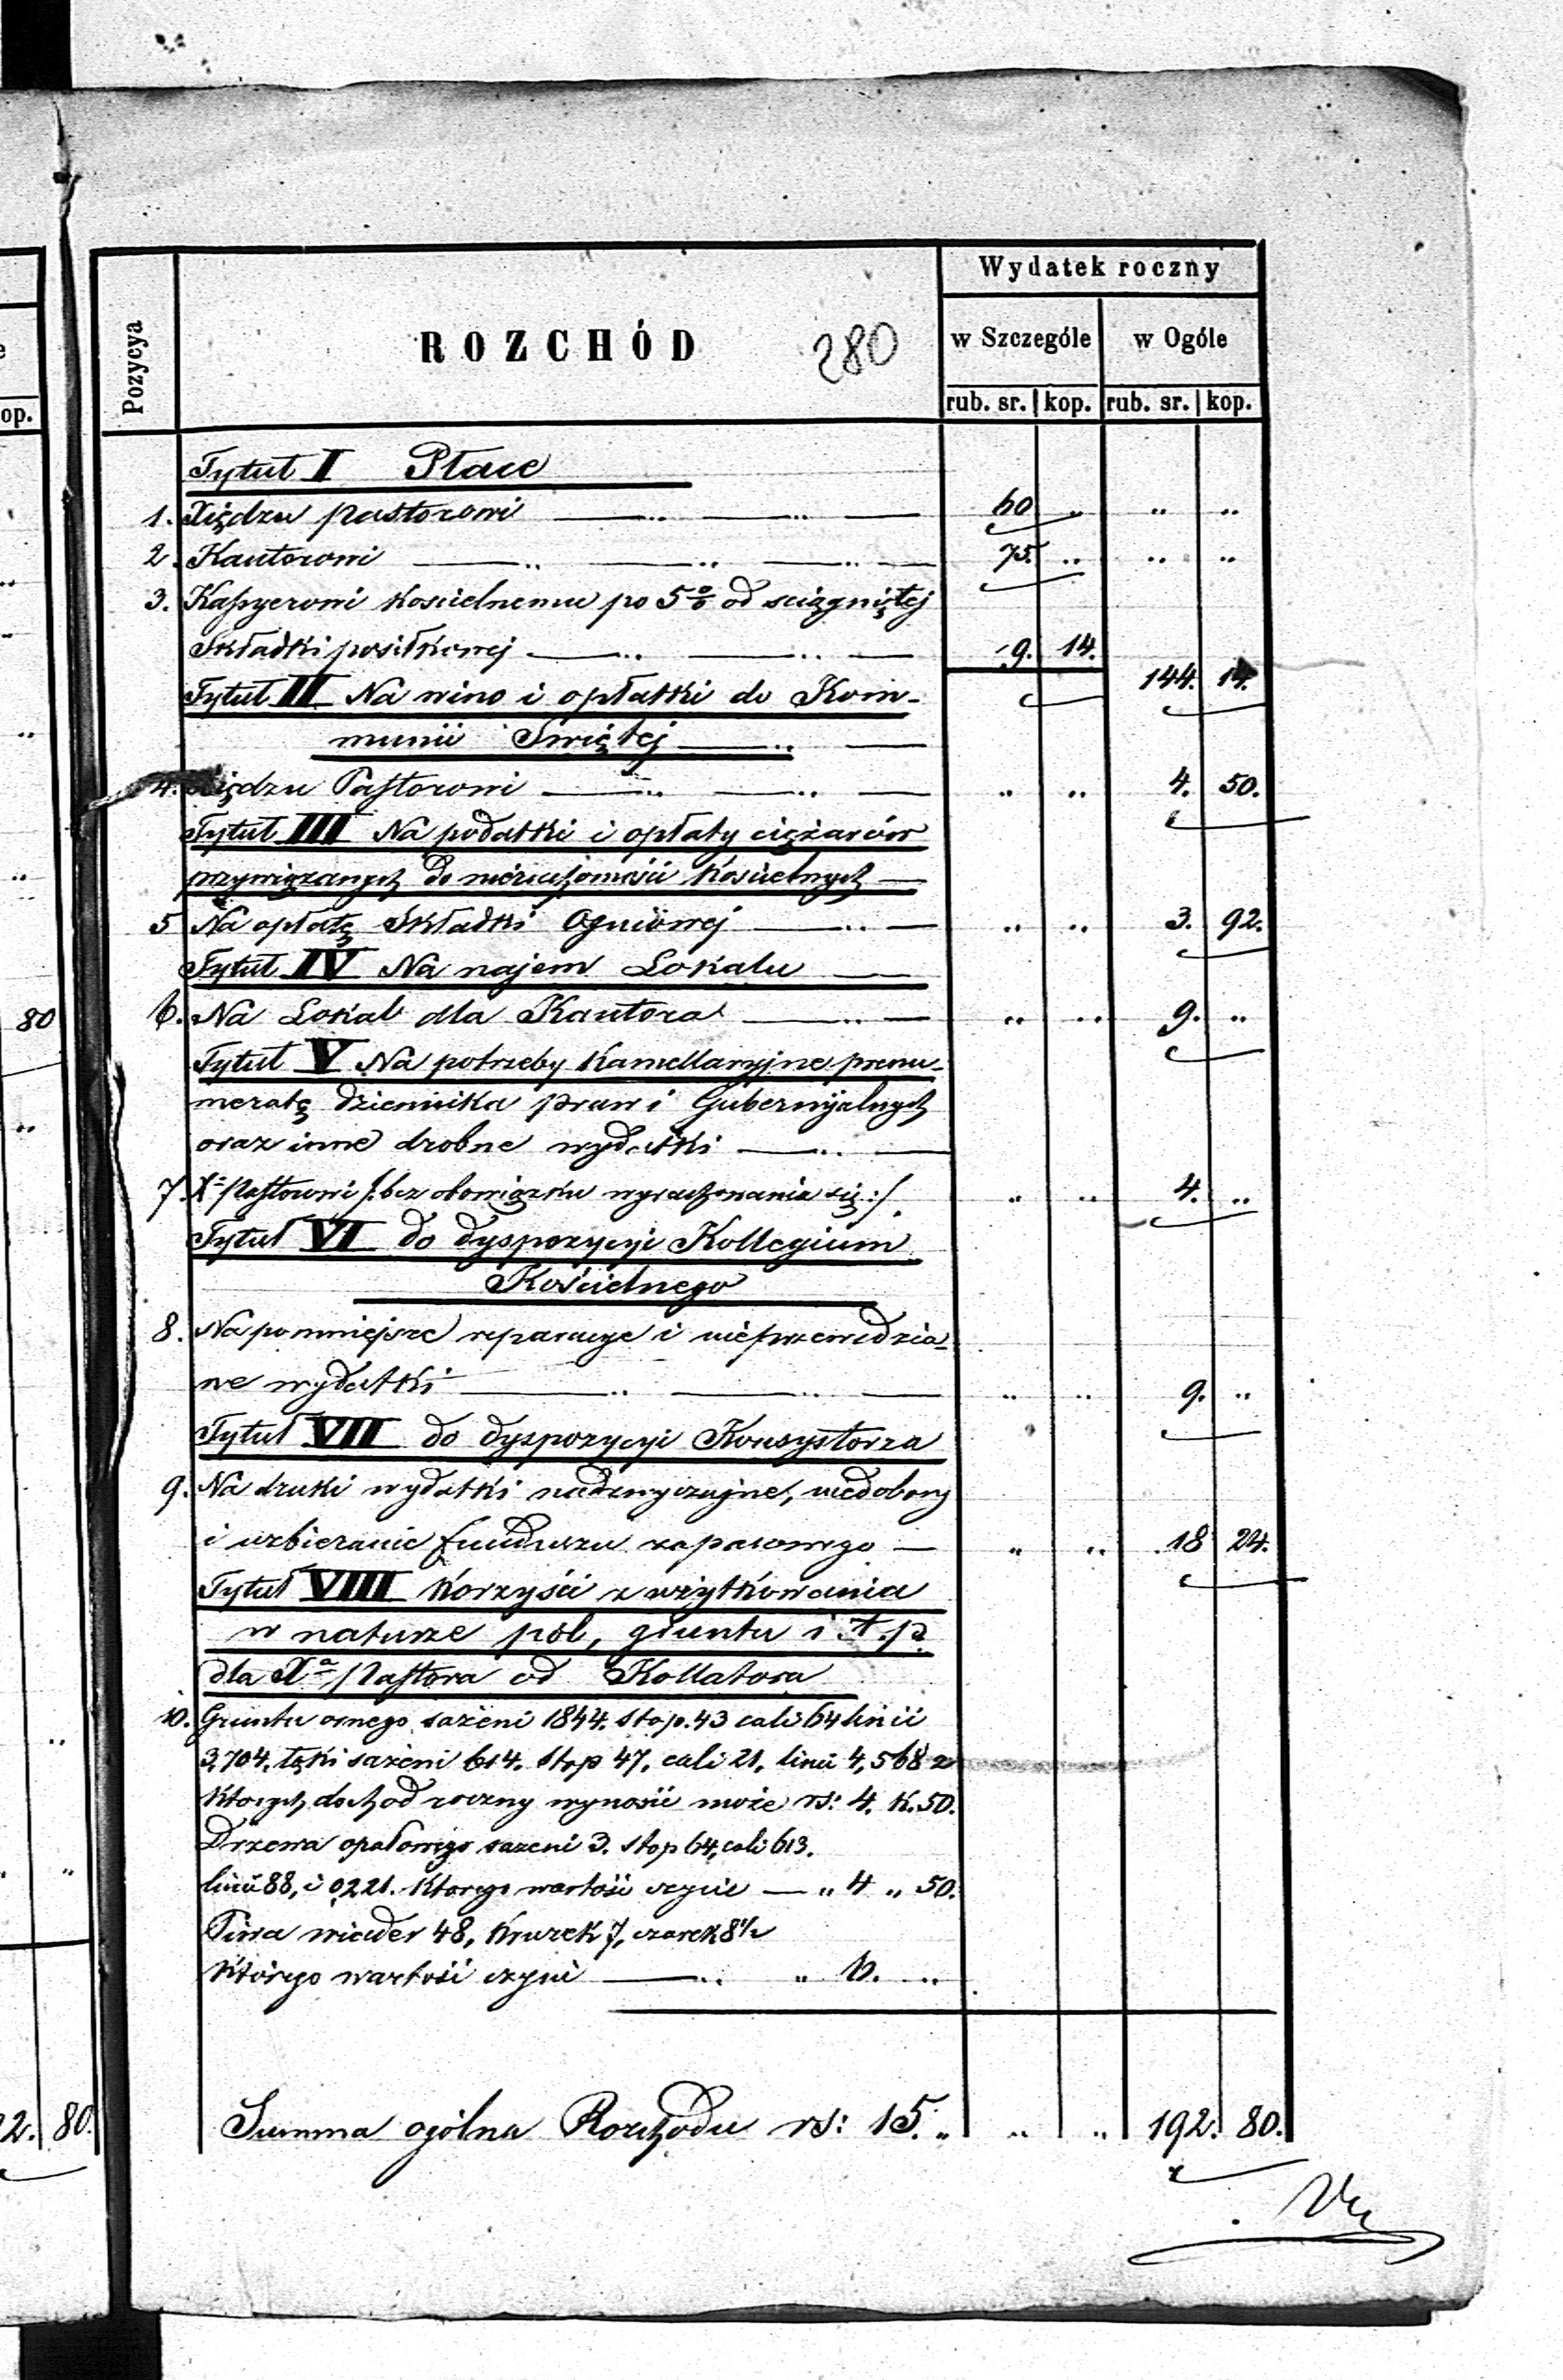 Wydatek roczny
Pozycya
ROZCHÓD 280
w Szczególe w Ogóle
rub. sr. kop. rub. sr. kop.
op.
Tytuł I Płace
1. Xiędzu pastorowi 60 .. .. ..
2. Kantorowi 75. .. .. ..
3. Kassyerowi kościelnemu po 5% od sciągniętej
Składki posiłkowej 9. 14.
144. 14.
Tytuł II Na wino i opłatki do Kom-
munii Swiętej
4. Xiędzu Pastorowi .. .. 4. 50.
Tytuł III Na podatki i opłaty ciężarów
przywiązanych do nieruchomości Kościelnych
5 Na opłatę Składki Ogniowej .. .. 3. 92.
Tytuł IV Na najem Lokalu
6. Na Lokal dla Kantora .. .. 9. ..
80
Tytuł V Na potrzeby Kancellaryjne prenu-
meratę dziennika praw i Gubernijalnych
oraz inne drobne wydatki
7. Xs Pastorowi /:bez obowiązku wyrachowania się:/. .. .. 4. ..
Tytuł VI do dyspozycyi Kollegium
Kościelnego
8. Na pomniejsze reparacye i nieprzewidzia-
ne wydatki .. .. 9. ..
Tytuł VII do dyspozycyi Konsystorza
9. Na druki wydatki nadzwyczajne, niedobory
i uzbieranie funduszu zapasowego .. .. 18 24.
Tytuł VIII Korzyści z użytkowania
w naturze pól, gruntu i t. p.
dla Xa Pastora od Kollatora
10. Gruntu ornego sażeni 1844. stop. 43 cali 64 linii
3,704. łąki sażeni 614. Stop 47, cali 21, linii 4,568 z
których dochód roczny wynosić może rs: 4. K. 50.
Drzewa opałowego sażeni 3. stop 64, cali 613.
linii 88, i 0221. Którego wartość czyni „ 4 „ 50.
Piwa wiader 48, Kruzek 7, czarek 8½
Którego wartość czyni „ 6. ..
2. 80.
Summa ogólna Rozchodu rs: 15. „ .. .. 192. 80.